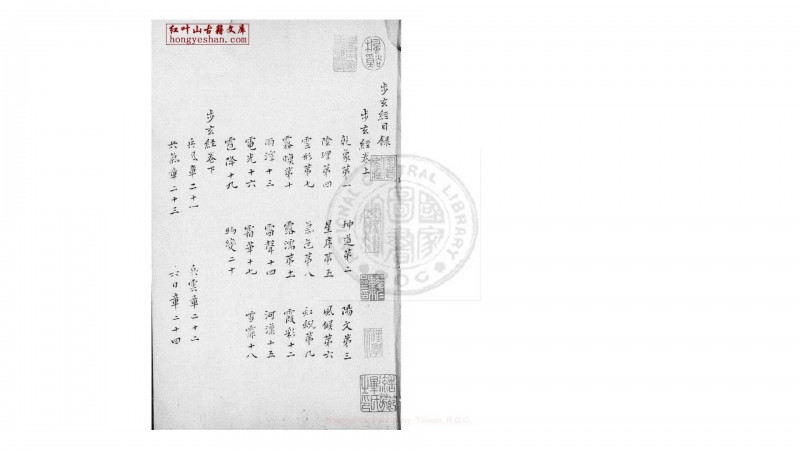 红叶山古籍文库
hongyeshan.com
步玄經目錄
步玄經卷上
乾象第一 坤道第二 陽文第三
陰理第四 星序第五 風候第六
雲形第七 氣色第八 虹蜺第九
霧暝第十 露濡第十一 霞彩十二
雨澤十三 雷聲十四 河漢十五
電光十六 霜華十七 雪霏十八
雹降十九 物變二十
步玄經卷下
兵風章二十一 兵雲章二十二
兵氣章二十三 六日章二十四
NATIONAL CENTRAL LIBRARY
R.O.C.
國家圖書館